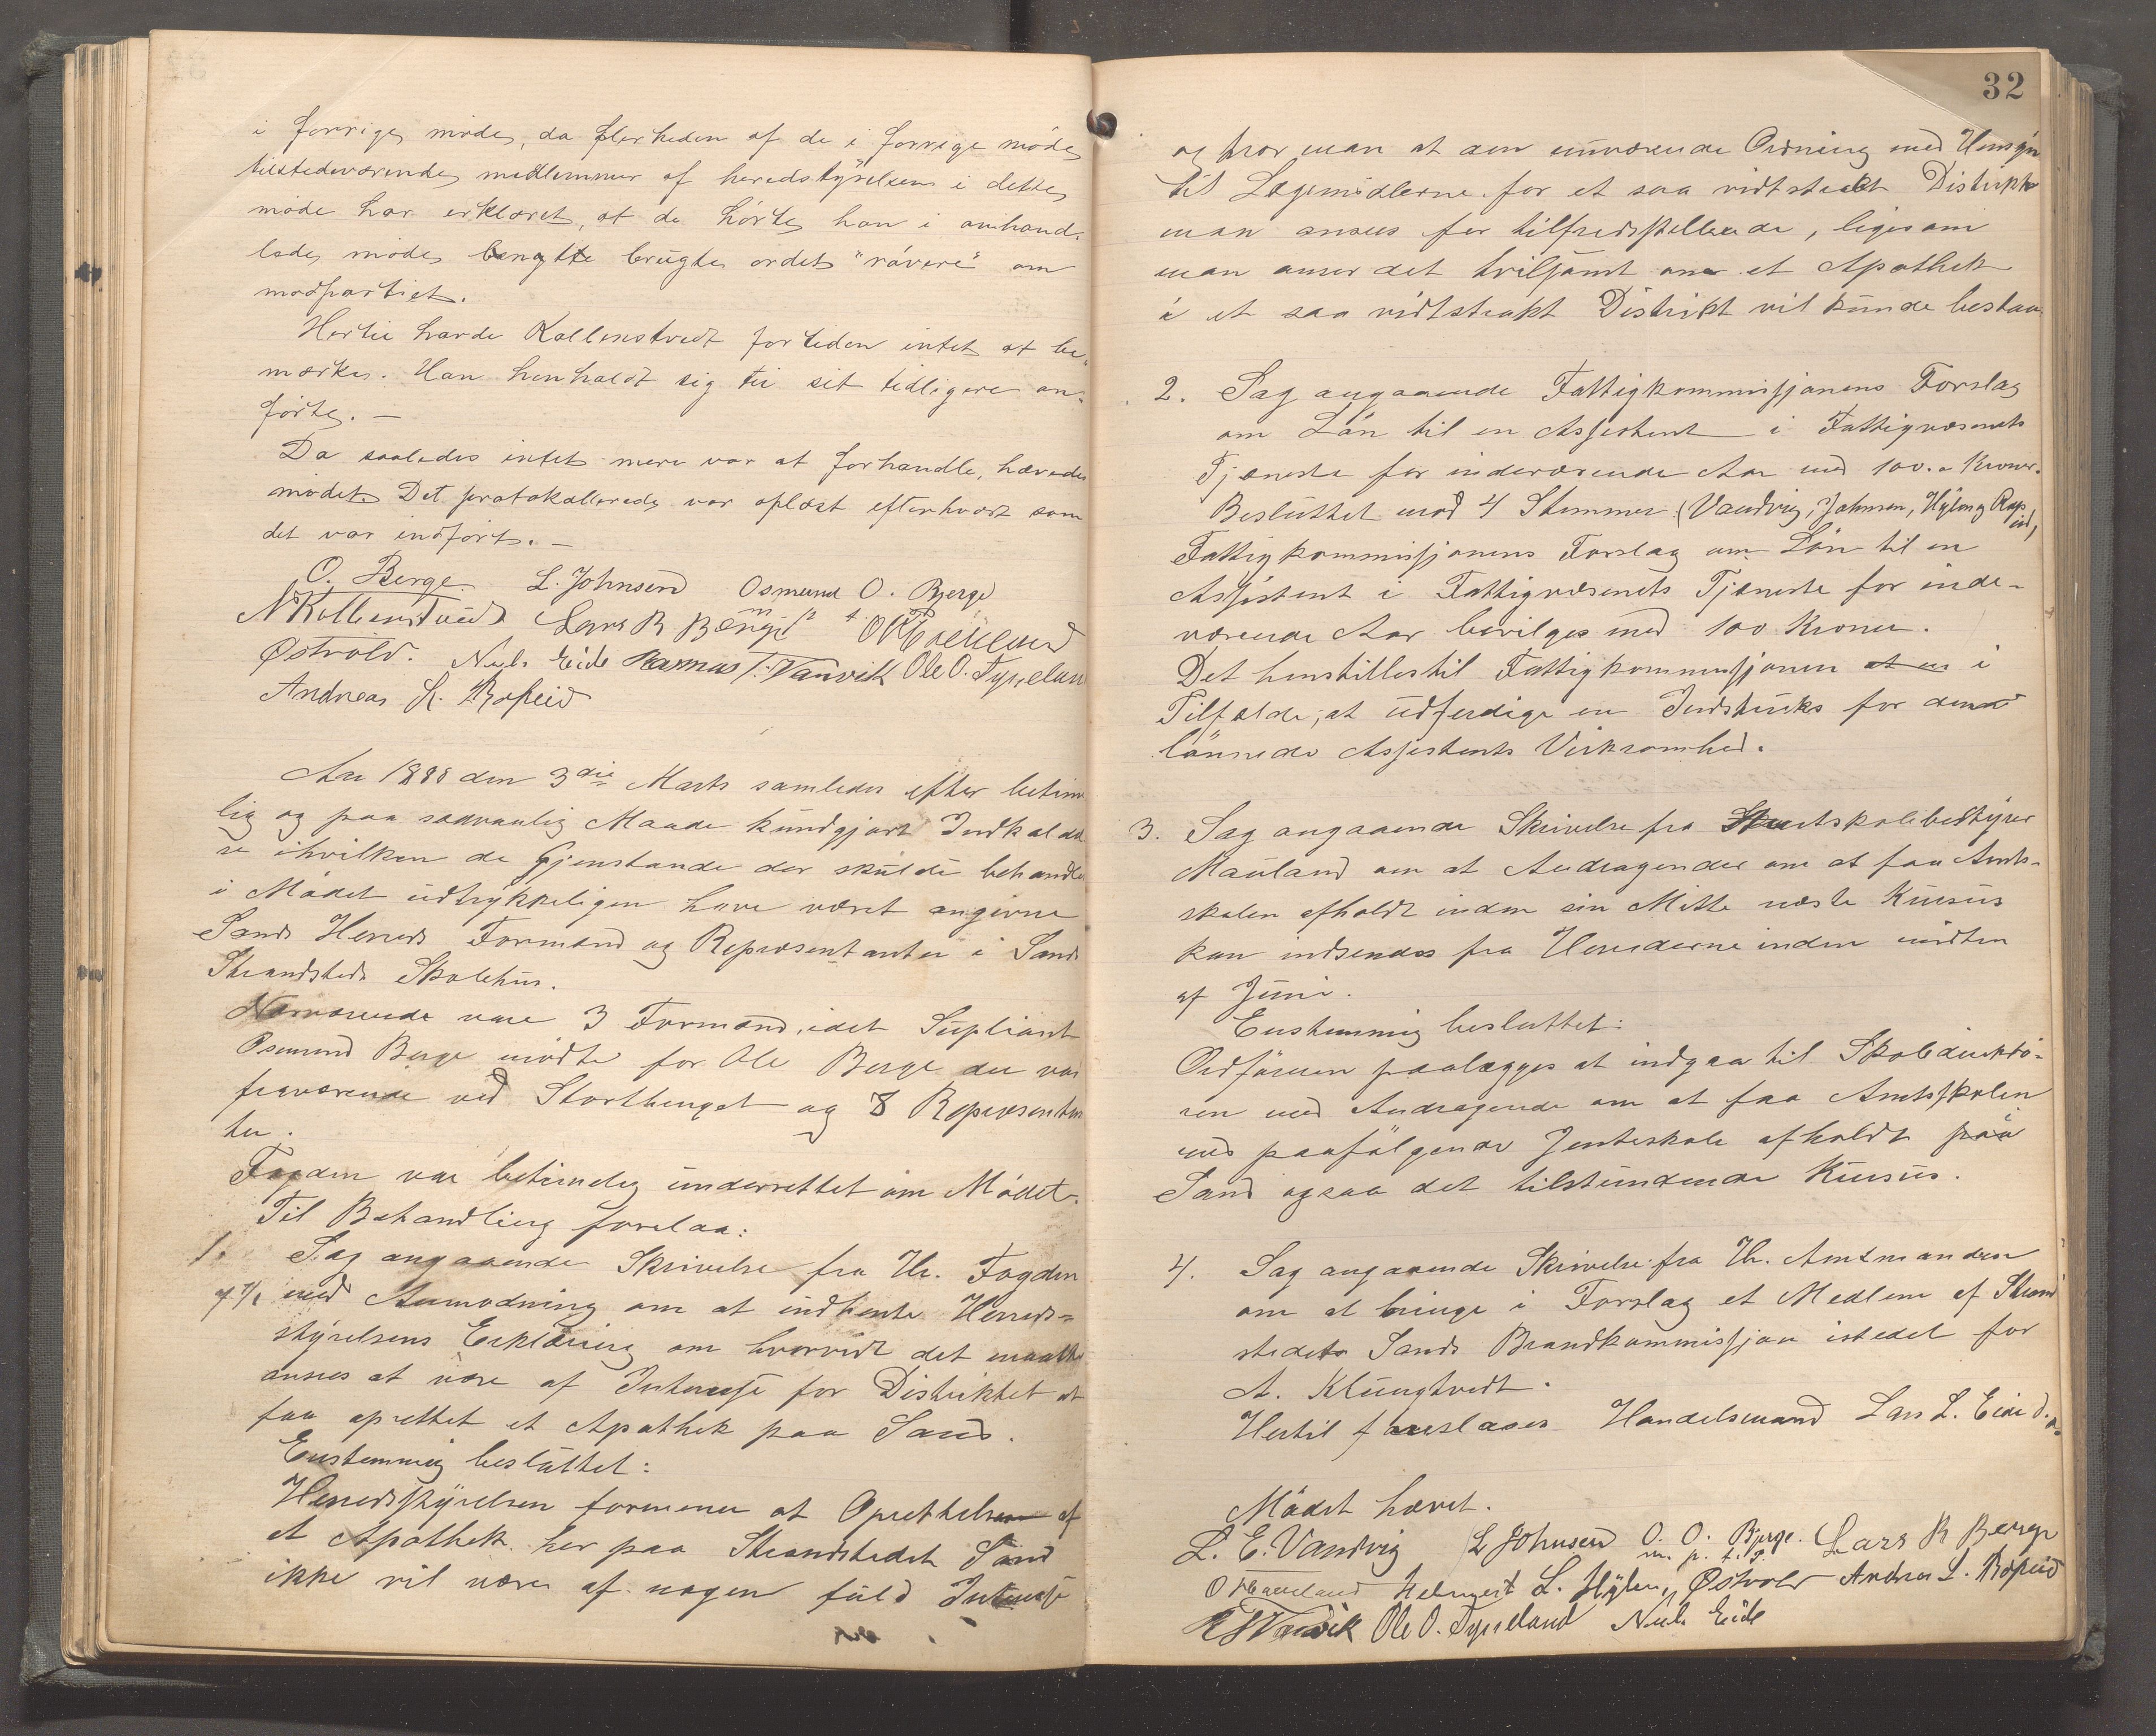 i forrige møde, da flerheden af de i forrige møde
tilstedeværende medlemmer af heredstyrelsen i dette
møde har erklæret, at de hørte han i omhand-
lede møde benytte brugte ordet "røvere" om
modpartiet.
Hertil havde Kollenstvedt for tiden intet at be-
mærke. Han henholdt sig til sit tidligere an-
førte. —
Da saaledes intet mere var at forhandle, hævedes
mødet. Det protokollerede var oplæst efterhvert som
det var indført. —
O. Berge L. Johnsen Osmund O. Bjerge
N Kollenstvedt Lars R Berge
Østvold. Niels Eide Rasmus T. Vanvik Ole O. Tysseland
Andreas L. Ropeid
Aar 1888 den 3die Marts samledes efter betime
lig og paa sædvanlig Maade kundgjort Indkaldel
se ihvilken de Gjenstande der skulde behandles
i Mødet udtrykkeligen have været angivne
Sands Herreds Formænd og Repræsentanter i Sands
Strandsteds Skolehus.
Nærværende vare 3 Formænd, idet Supliant
Osmund Berge mødte for Ole Berge der var
fraværende ved Storthinget og 8 Repræsentan
ter.
Fogden var betimelig underrettet om Mødet.
Til Behandling forelaa:
1. Sag angaaende Skrivelse fra Hr. Fogden
med Anmodning om at indhente Herreds-
styrelsens Erklæring om hvorvidt det maatte
ansees at være af Interesse for Distriktet at
faa oprettet et Apothek paa Sand.
Enstemmig besluttet:
Herredsstyrelsen formener at Oprettelsen af
et Apothek her paa Strandstedet Sand
ikke vil være af nogen fuld Interesse
32
og tror man at den nuværende Ordning med Hensyn
til Lægemidlerne for et saa vidtstrakt Distrikt
man ansees for tilfredsstillende, ligesom
man anser det tvilsomt om et Apothek
i et saa vidtstrakt Distrikt vil kunde bestaa.
2. Sag angaaende Fattigkommissjonens Forslag
om Løn til en Assistent i Fattigvæsenets
Tjeneste for indeværende Aar med 100.- Kroner.
Besluttet mod 4 Stemmer (Vandvig, Johnsen, Hylen og Rop
eid)
Fattigkommissjonens Forslag om Løn til en
Assistent i Fattigvæsenets Tjeneste for inde-
værende Aar bevilges med 100 Kroner.
Det henstilles til Fattigkommissjonen at en i
Tilfælde, at udferdige en Indstruks for den
lønnede Assistents Virksomhed.
3. Sag angaaende Skrivelse fra Amtskolebestyrer
Mauland om at Andragender om at faa Amts-
skolen afholdt inden sin Midte næste Kursus
kan indsendes fra Herrederne inden midten
af Juni.
Enstemmig besluttet:
Ordføreren paalægges at indgaa til Skoledirektø-
ren med Andragende om at faa Amtsskolen
med paafølgende Jenteskole afholdt paa
Sand ogsaa det tilstundende Kursus.
4. Sag angaaende Skrivelse fra Hr. Amtmanden
om at bringe i Forslag et Medlem af Strand
stedets Sands Brandkommissjon istedet for
A. Klungtvedt.
Hertil foreslaaes Handelsmand Lars L. Eide
Mødet hævet.
L. E. Vandvig L Johnsen O. O. Bjerge. Lars R Berge
m. p. t. p.
Helmert L. Hylen, Østvold Andreas L. Ropeid
R T Vanvik Ole O. Tysseland Niels Eide